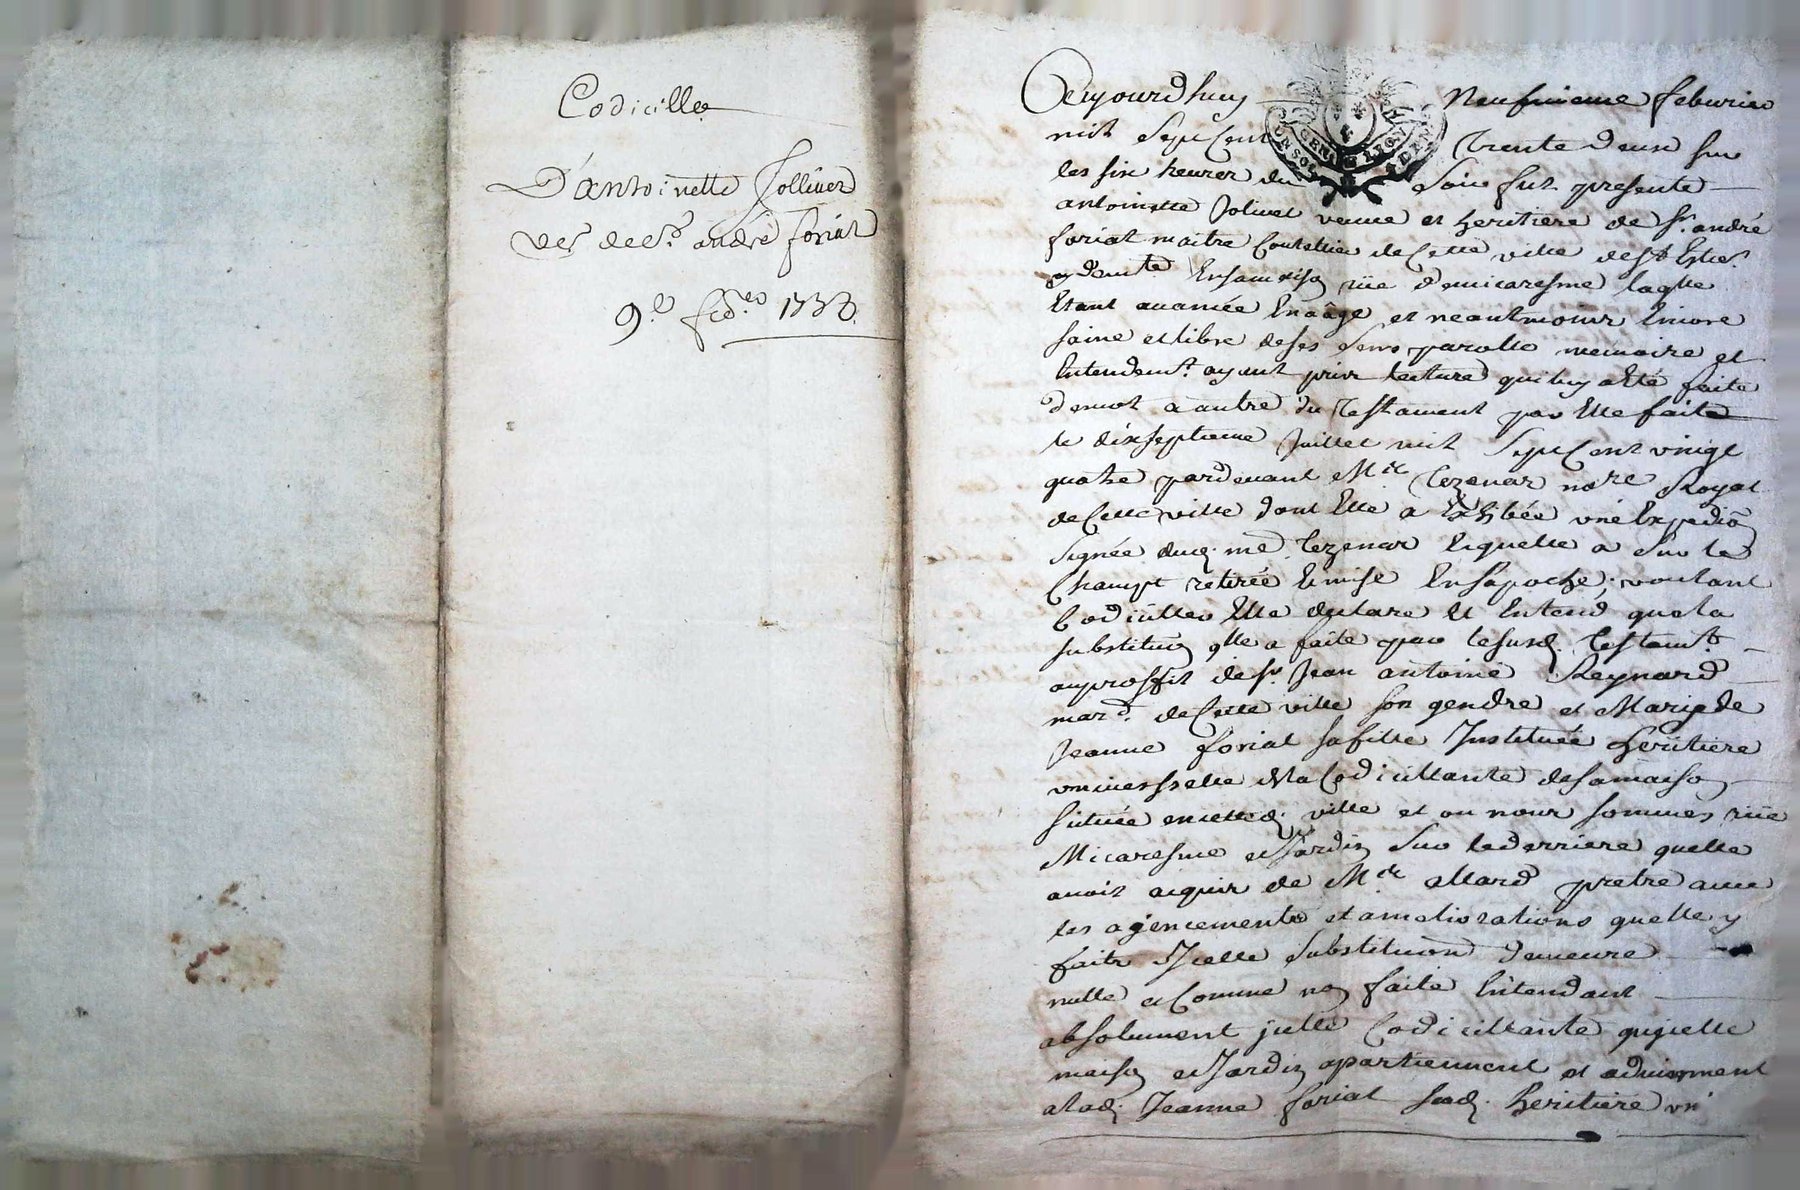 Codicille
D'antoinette Jolliuet
ve. de deft. andré foriat
9.e feb.er 1732
Aujourdhuy Neufuieme feburier
mil Sept Cent Trente deux sur
les six heures du Soir fut presente
antoinette Joliuet veuue et heritiere de Sr. andré
foriat maitre Coutellier de Cette ville de St Estie.
y demte En sa maison rüe demicaresme laqlle
Etant auancée En aâge et neantmoins Encore
saine et libre de ses Sens parolle memoire et
Entendemt. ayant pris lecture qui luy a Eté faite
de mot a autre du Testament par Elle faite
le dixseptieme Juillet mil Sept Cent vingt
quatre pardeuant Me. Tezenas nore Royal
de Cette ville dont Elle a Exhibée vne Expedion
Signée dud. me Tezenas Laquelle a Sur le
Champt retirée Et mise En sa poche, voulant
Codiciller Elle declare Et Entend que la
substituon qlle a faite par le susd. Testamt.
au proffit de Sr. Jean antoine Reynard
mard. de Cette ville son gendre et Mary de
Jeanne foriat sa fille Instituée heritiere
vniuersselle de la Codicillante de sa maison
située en cetted. ville et ou nous sommes rüe
Micaresme et Jardin Sur le derriere quelle
auoit aquis de Me. allard pretre auec
les agencements et ameliorations quelle y
faits Icelle Substitution demeure
nulle et Comme non faite Entendant
absolument jcelle Codicillante qujcelle
maison et Jardin apartiennent et aduiennent
a lad. Jeanne foriat sad. heritiere vni
GEN LEGV